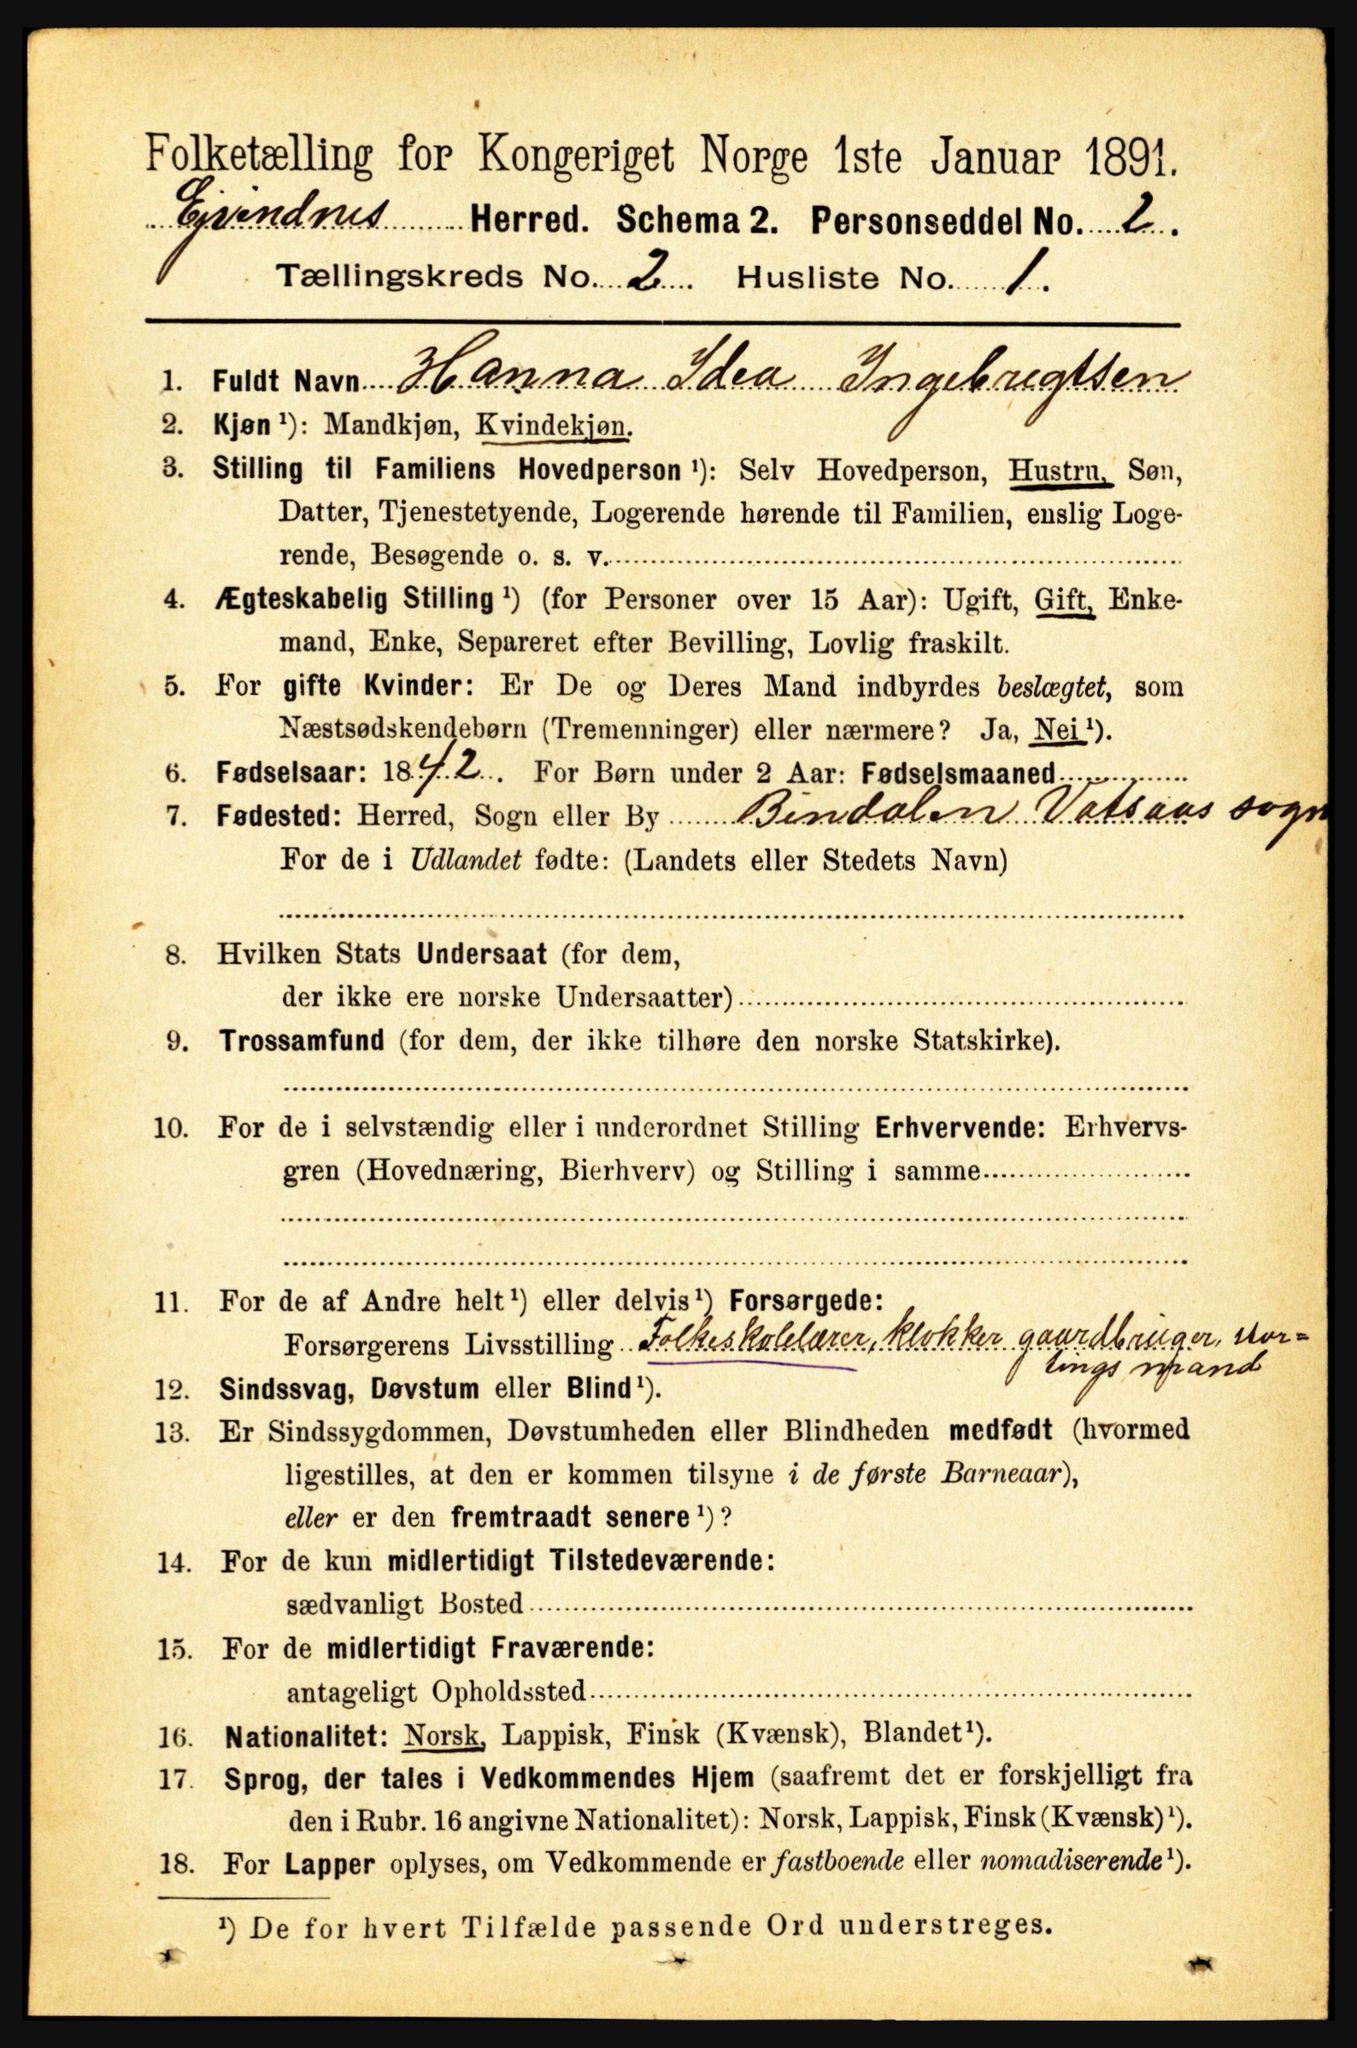 Folketælling for Kongeriget Norge 1ste Januar 1891.
Ejvindnes Herred. Schema 2. Personseddel No. 2.
Tællingskreds No. 2. Husliste No. 1.
1. Fuldt Navn Hanna Idea Ingebregtsen
2. Kjøn ¹): Mandkjøn, Kvindekjøn.
3. Stilling til Familiens Hovedperson ¹): Selv Hovedperson, Hustru, Søn,
Datter, Tjenestetyende, Logerende hørende til Familien, enslig Loge-
rende, Besøgende o. s. v.
4. Ægteskabelig Stilling ¹) (for Personer over 15 Aar): Ugift, Gift, Enke-
mand, Enke, Separeret efter Bevilling, Lovlig fraskilt.
5. For gifte Kvinder: Er De og Deres Mand indbyrdes beslægtet, som
Næstsødskendebørn (Tremenninger) eller nærmere? Ja, Nei ¹).
6. Fødselsaar: 1842. For Børn under 2 Aar: Fødselsmaaned
7. Fødested: Herred, Sogn eller By Bindalen Vatsaas sogn
For de i Udlandet fødte: (Landets eller Stedets Navn)
8. Hvilken Stats Undersaat (for dem,
der ikke ere norske Undersaatter)
9. Trossamfund (for dem, der ikke tilhøre den norske Statskirke).
10. For de i selvstændig eller i underordnet Stilling Erhvervende: Erhvervs-
gren (Hovednæring, Bierhverv) og Stilling i samme
11. For de af Andre helt ¹) eller delvis ¹) Forsørgede:
Forsørgerens Livsstilling Folkeskolelærer, klokker gaardbruger, stor-
tingsmand
12. Sindssvag, Døvstum eller Blind ¹).
13. Er Sindssygdommen, Døvstumheden eller Blindheden medfødt (hvormed
ligestilles, at den er kommen tilsyne i de første Barneaar),
eller er den fremtraadt senere ¹)?
14. For de kun midlertidigt Tilstedeværende:
sædvanligt Bosted
15. For de midlertidigt Fraværende:
antageligt Opholdssted
16. Nationalitet: Norsk, Lappisk, Finsk (Kvænsk), Blandet ¹).
17. Sprog, der tales i Vedkommendes Hjem (saafremt det er forskjelligt fra
den i Rubr. 16 angivne Nationalitet): Norsk, Lappisk, Finsk (Kvænsk) ¹).
18. For Lapper oplyses, om Vedkommende er fastboende eller nomadiserende ¹).
¹) De for hvert Tilfælde passende Ord understreges.